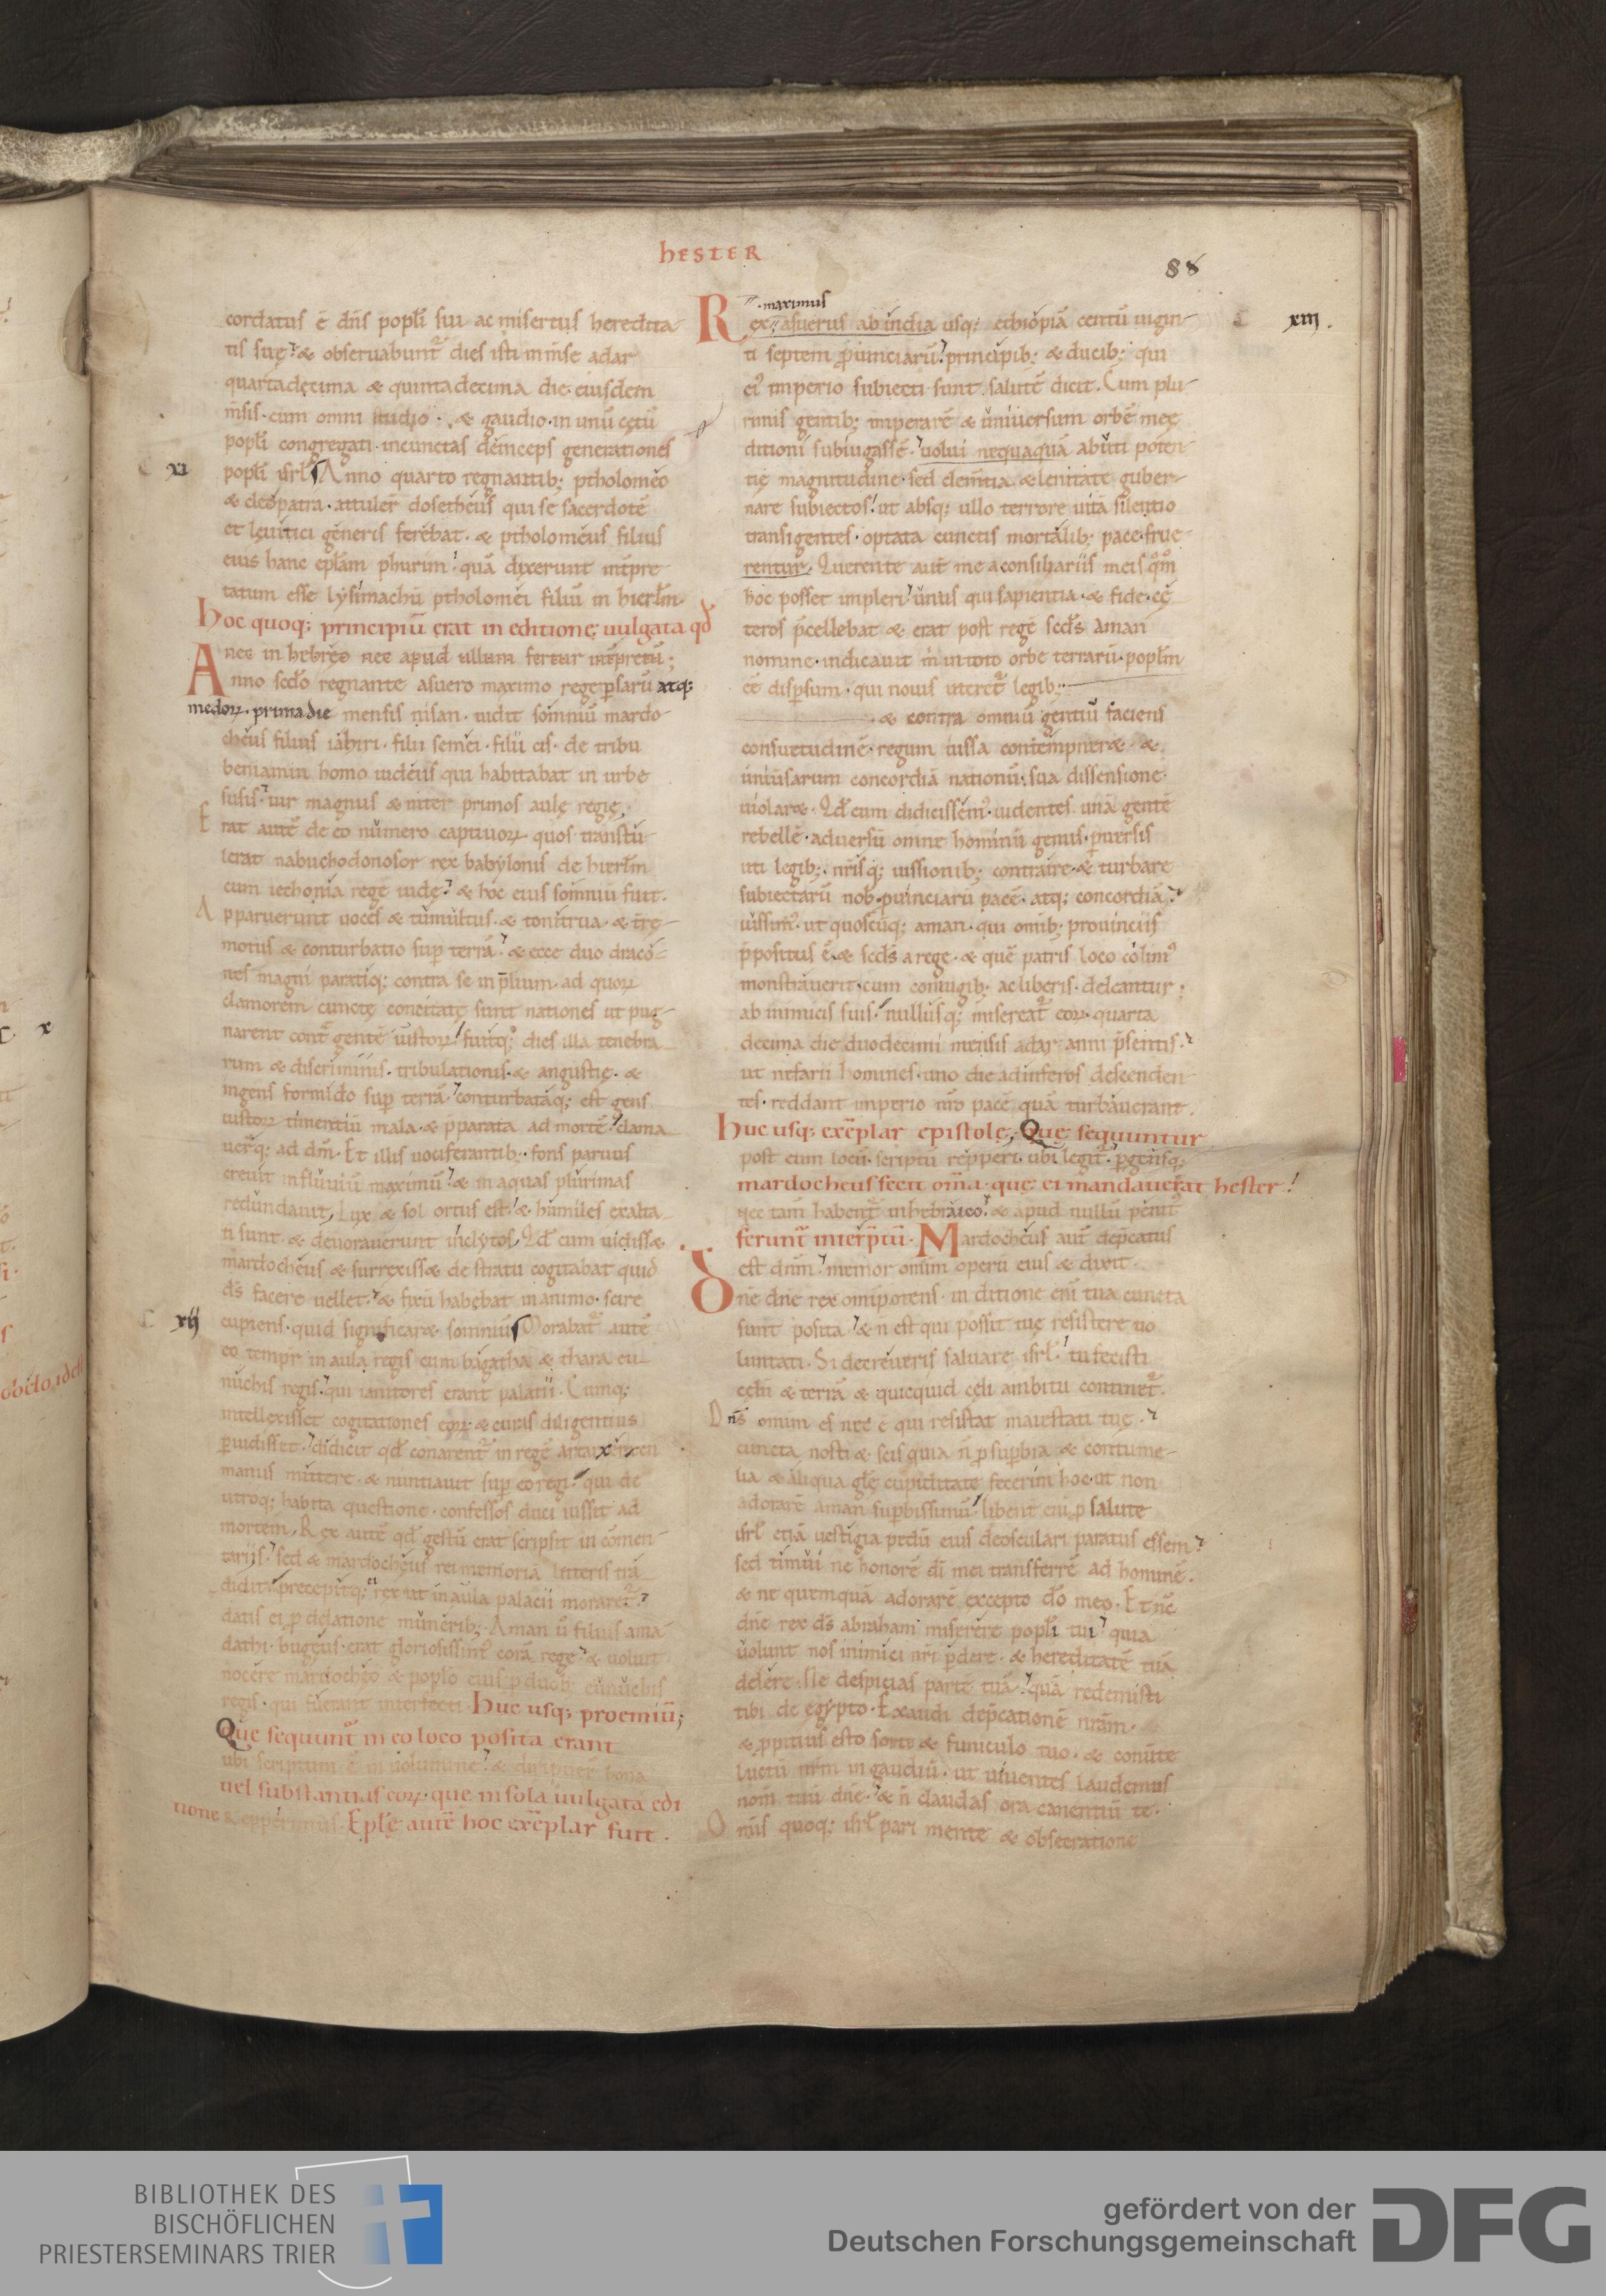 hESTER
88
cordatus ē dn̄s popl̄i sui ac misertus heredita
tis suę. & observabunt᷑ dies isti in m̄se adar
quarta dęcima & quinta decima die eiusdem
m̄sis. cum omni studio. & gaudio. in unū cętū
popl̄i congregati. in cunctas deinceps generationes
xi popl̄i isrl̄. Anno quarto regnantib; ptholomęo
& cleopatra. attuler̄ dositheus qui se sacerdotē
et leuitici generis ferebat. & ptholomeus filius
eius hanc epl̄am phurim. quā dixerunt int̄pre
tatum esse lysimachū ptholomęi filiū in hierl̄m.
hoc quoq; principiū erat in editione uulgata qd̄
nec in hebręo nec apud ullum fertur int̄pretū;
Anno sc̄do regnante asuero maximo rege p̄sarū atq;
medoꝝ. prima die mensis nisan. uidit somniū mardo
cheus filius iahiri. filii semei. filii cis. de tribu
beniamin homo iudęus qui habitabat in urbe
susis. uir magnus & inter primos aulę regię.
Erat autē de eo numero captiuoꝝ quos transtu
lerat nabuchodonosor rex babylonis de hierl̄m
cum iechonia rege iudę. & hoc eius somniū fuit.
Apparuerunt uoces & tumultus. & tonitrua. & tr̄ę
motus & conturbatio sup̄ terrā. & ecce duo draco
nes magni paratiq; contra se in p̄lium. ad quoꝝ
clamorem cunctę concitatę sunt nationes ut pug
narent contᷓ gentē iustoꝝ. fuitq; dies illa tenebra
rum & discriminis. tribulationis. & angustię. &
ingens formido sup̄ terrā. conturbataq; est gens
iustoꝝ timentiū mala. & p̄parata ad mortē. clama
uer̄q; ad dm̄. Et illis uociferantib;. fons paruus
creuit in fluuiū maximū. & in aquas plurimas
redundauit, Lux & sol ortus est. & humiles exalta
ti sunt. & deuorauerunt inclytos. Qd̄ cum uidiss&
mardocheus & surrexiss& de stratu cogitabat quid
ds̄ facere uellet. & fixū habebat in animo. scire
xii cupiens. quid significar& somniū. Morabat᷑ autē
eo tempr̄ in aula regis cum bagatha & thara eu
nuchis regis. qui ianitores erant palatii. Cumq;
intellexisset cogitationes eoꝝ. & curis diligentius
p̄uidisset. didicit qd̄ conarent᷑ in regē artaxerxen
manus mittere. & nuntiauit sup̄ eo regi. qui de
utroq; habita questione. confessos duci iussit ad
mortem, Rex autē qd̄ gestū erat scripsit in com̄en
tariis. sed & mardochęus rei memoriā litteris tra
didit. precepitq; ei rex ut in aula palacii moraret᷑.
datis ei p̄ delatione munerib;. Aman ū filius ama
dathi. bugęus. erat gloriosissim᷒ corā rege. & uoluit
nocere mardocheo & poplo eius p̄ duob; eunuchis
regis. qui fuerant interfecti. huc usq; proemiū;
Que sequunt᷑ in eo loco posita erant
ubi scriptum ē in uolumine. & diripuer̄ bona
uel substantias eoꝝ. que in sola uulgata edi
tione repperimus. Eplę autē hoc exēplar fuit.
.maximus
Rex asuerus ab india usq; ethiopiā centū uigin xiii.
ti septem p̄uinciarū. principib; & ducib; qui
ei᷒ imperio subiecti sunt. salutē dicit. Cum plu
rimis gentib; imperarē & uniuersum orbē meę
ditioni subiugassē. uolui nequaquā abuti poten
tię magnitudine. sed clem̄tia. & lenitate guber
nare subiectos. ut absq; ullo terrore uitā silentio
transigentes. optata cunctis mortalib; pace frue
rentur. Querente aut̄ me a consiliariis meis qͦmͦ
hoc posset impleri. unus qui sapientia. & fide. cę
teros p̄cellebat & erat post regē sc̄ds aman
nomine. indicauit m̄ in toto orbe terrarū. popl̄m
eē disp̄sum. qui nouis uteret᷑ legib;.
& contra omniū gentiū faciens
consuetudinē. regum iussa contempner&. &
uniūsarum concordiā nationū. sua dissensione.
uiolar&. Qd̄ cum didicissem᷒. uidentes unā gentē
rebellē. aduersū omne hominū genus. p̄uersis
uti legib;. nr̄isq; iussionib; contraire. & turbare
subiectarū nob̄ p̄uinciarū pacē. atq; concordiā.
iussim᷒. ut quoscūq; aman. qui omib; prouinciis
p̄positus ē. & sc̄ds a rege. & quē patris loco colim᷒
monstrauerit. cum coniugib; ac liberis. deleantur;
ab inimicis suis. nullusq; misereat᷑ eoꝝ. quarta
decima die duodecimi mensis adar anni p̄sentis.
ut nefarii homines. uno die ad inferos descenden
tes. reddant imperio nr̄o pacē quā turbauerant.
huc usq; exēplar epistolę. Quę sequuntur
post eum locū. scriptū repperi. ubi legit᷑. p̄gensq;
mardocheus fecit om̄a. que ei mandauerat hester.
nec tam̄ habent᷑ in hebraico. & apud nullū penit᷒
ferunt᷑ interp̄tū. Mardocheus aut̄ dep̄catus
est dn̄m. memor om̄ium operū eius & dixit.
Dn̄e dn̄e rex omīpotens. in ditione eni᷒ tua cuncta
sunt posita. & n̄ est qui possit tuę resistere uo
luntati. Si decreueris saluare isrl̄. tu fecisti
cęlū & terrā & quicquid cęli ambitu continet᷑.
Dn̄s omium es nec ē qui resistat maiestati tuę.
cuncta nosti & scis quia n̄ p̄ sup̄bia & contume
lia & aliqua glę cupiditate fecerim hoc. ut non
adorarē aman sup̄bissimū. libent eni᷒ p̄ salute
isrl̄ etiā uestigia pedū eius deosculari paratus essem.
sed timui ne honorē di᷒ mei transferrē ad hominē.
& ne quemquā adorarē excepto do᷒ meo. Et nc̄
dn̄e rex ds̄ abraham miserere popl̄i tui quia
uolunt nos inimici nr̄i p̄dere. & hereditatē tuā
delere. Ne despicias partē tuā. quā redemisti
tibi de egypto. Exaudi dep̄cationē nr̄am.
& p̄pitius esto sorti & funiculo tuo. & conūte
luctū nr̄m in gaudiū. ut uiuentes laudemus
nom̄ tuū dn̄e. & n̄ claudas ora canentiū te.
Omīs quoq; isrl̄ pari mente & obsecratione
x
BIBLIOTHEK DES
BISCHÖFLICHEN
PRIESTERSEMINARS TRIER
gefördert von der
Deutschen Forschungsgemeinschaft
DFG